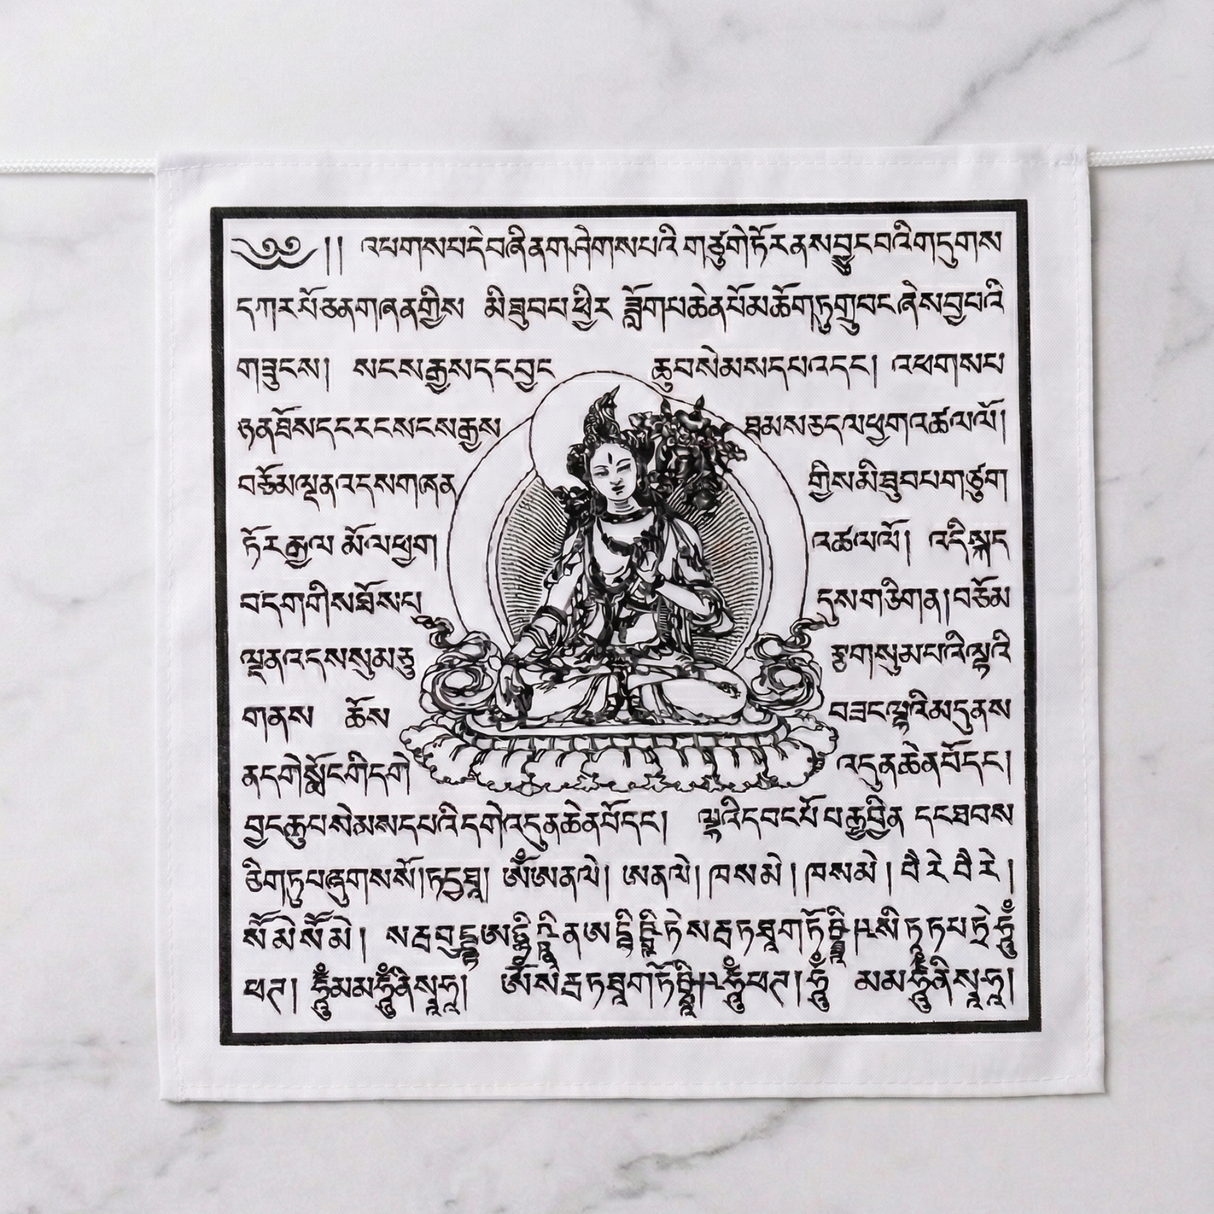 ༄༅།། འཕགས་པ་དེ་བཞིན་གཤེགས་པའི་གཙུག་ཏོར་ནས་བྱུང་བའི་གདུགས
དཀར་པོ་ཅན་གཞན་གྱིས མི་ཐུབ་པ་ཕྱིར ཟློག་པ་ཆེན་པོ་མཆོག་ཏུ་གྲུབ་པ་ཞེས་བྱ་བའི
གཟུངས། སངས་རྒྱས་དང་བྱང ཆུབ་སེམས་དཔའ་དང་། འཕགས་པ
ཉན་ཐོས་དང་རང་སངས་རྒྱས ཐམས་ཅད་ལ་ཕྱག་འཚལ་ལོ།
བཅོམ་ལྡན་འདས་གཞན གྱིས་མི་ཐུབ་པ་གཙུག
ཏོར་རྒྱལ་མོ་ལ་ཕྱག འཚལ་ལོ། འདི་སྐད
བདག་གིས་ཐོས་པ དུས་གཅིག་ན།བཅོམ
ལྡན་འདས་སུམ་ཅུ རྩ་གསུམ་པའི་ལྷའི
གནས ཆོས བཟང་ལྷའི་མདུན་ས
ན་དགེ་སློང་གི་དགེ འདུན་ཆེན་པོ་དང་།
བྱང་ཆུབ་སེམས་དཔའི་དགེ་འདུན་ཆེན་པོ་དང་། ལྷའི་དབང་པོ་བརྒྱ་བྱིན་དང་ཐབས
ཅིག་ཏུ་བཞུགས་སོ།ཏདྱཐཱ། ཨོཾ་ཨ་ན་ལེ། ཨ་ན་ལེ། ཁ་ས་མེ། ཁ་ས་མེ། བཻ་རེ་བཻ་རེ།
སོ་མེ་སོ་མེ། སརྦ་བུདྡྷ་ཨ་དྷིཥྛཱ་ན་ཨ་དྷིཥྛི་ཏེ་སརྦ་ཏ་ཐཱ་ག་ཏོ་ཥྞཱི་ཥ་སི་ཏཱ་ཏ་པ་ཏྲེ་ཧཱུྃ
ཕཊ། ཧཱུྃ་མ་མ་ཧཱུྃ་ནི་སྭཱཧཱ། ཨོཾ་སརྦ་ཏ་ཐཱ་ག་ཏོ་ཥྞཱི་ཥ་ཧཱུྃ་ཕཊ། ཧཱུྃ མ་མ་ཧཱུྃ་ནི་སྭཱཧཱ།